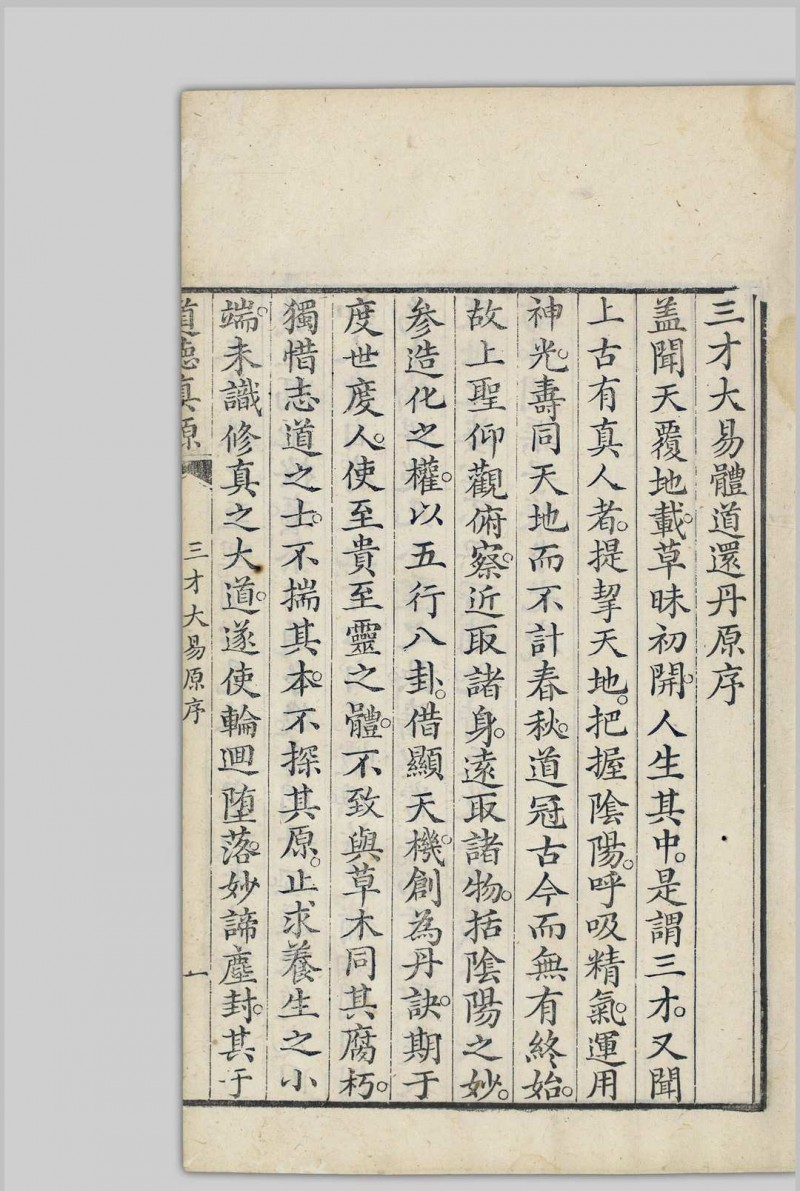 三才大易體道還丹原序
盖聞天覆地載。草昧初開。人生其中。是謂三才。又聞
上古有真人者。提挈天地。把握陰陽。呼吸精氣。運用
神光。壽同天地而不計春秋。道冠古今而無有終始。
故上聖仰觀俯察。近取諸身。遠取諸物。括陰陽之妙。
參造化之權。以五行八卦。借顯天機。創為丹訣。期于
度世度人。使至貴至靈之體。不致與草木同其腐朽。
獨惜志道之士。不揣其本。不探其原。止求養生之小
端。未識修真之大道。遂使輪迴墮落。妙諦塵封。其于
道德真原
三才大易原序
一